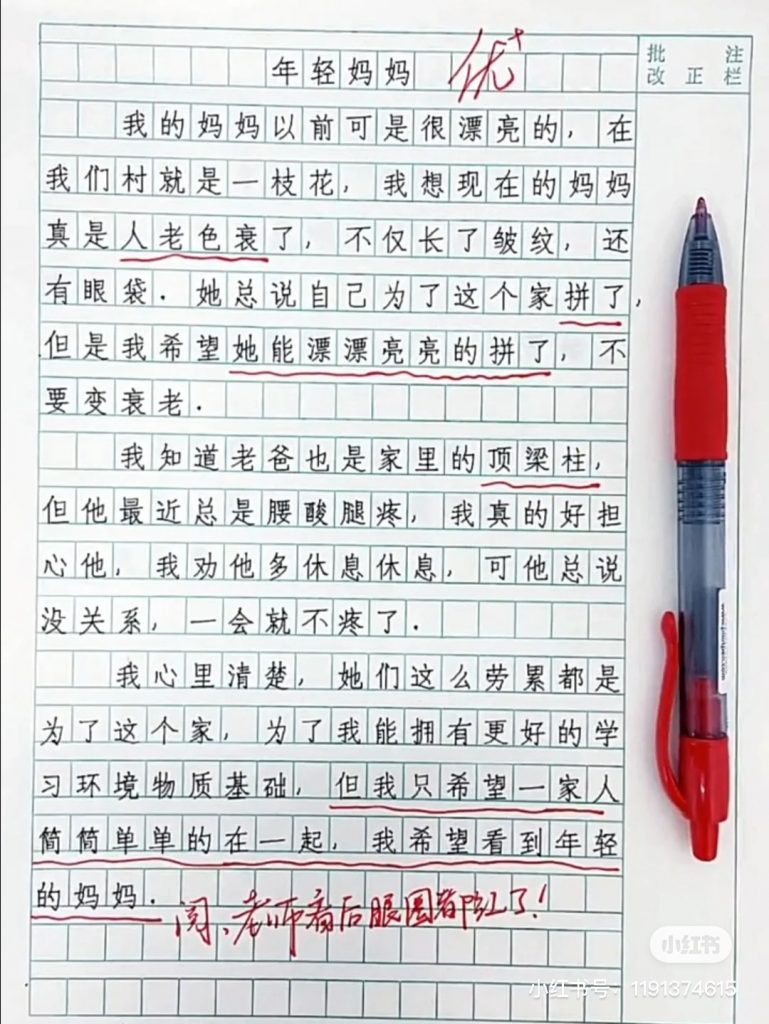 年轻妈妈 优+
批 注
改 正 栏
我的妈妈以前可是很漂亮的，在
我们村就是一枝花，我想现在的妈妈
真是人老色衰了，不仅长了皱纹，还
有眼袋．她总说自己为了这个家拼了，
但是我希望她能漂漂亮亮的拼了，不
要变衰老．
我知道老爸也是家里的顶梁柱，
但他最近总是腰酸腿疼，我真的好担
心他，我劝他多休息休息，可他总说
没关系，一会就不疼了．
我心里清楚，她们这么劳累都是
为了这个家，为了我能拥有更好的学
习环境物质基础，但我只希望一家人
简简单单的在一起，我希望看到年轻
的妈妈．阅、老师看后眼圈都红了！
小红书
小红书号：1191374615